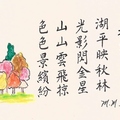 湖平映秋林
光影閃金星
山山雲飛掠
色色景繽紛